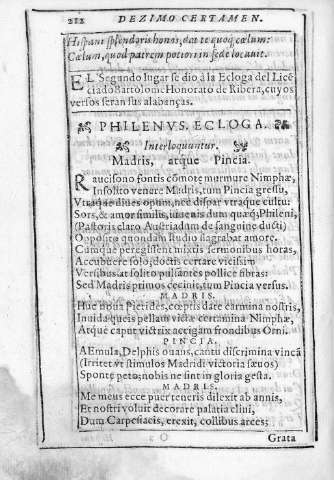 212 DEZIMO CERTAMEN.
Hispani splendoris honos, dat te quoq̃ cœlum:
Cœlum, quod patrem potiori in sede locauit.
EL Segundo lugar se dio à la Ecloga del Licē
ciado Bartolome Honorato de Ribera, cuyos
versos seran sus alabanças.
PHILENVS. ECLOGA.
Interloquuntur.
Madris, atque Pincia.
Raucisono fontis cōmote murmure Nimphæ,
Insolito venere Madris, tum Pincia gressu,
Vtraque diues opum, nec dispar vtraque cultu:
Sors, & amor similis, iuuenis dum Phileni,
(Pastoris claro Austriadum de sanguine ducti)
Opposito quondam studio flagrabat amore.
Cumque peregissent mixtis sermonibus horas,
Accubuere solo, doctis certare vicissim
Versibus at solito pulsantes pollice fibras:
Sed Madris primos cecinit, tum Pincia versus.
MADRIS.
Huc noua Pierides, cœptis date carmina nostris,
Inuida queis pellam victæ certamina Nimphæ,
Atque caput victrix actigam frondibus Orni.
PINCIA.
AEmula, Delphis ouans, cantu discrimina vincā
(Irritet vt stimulos Madridi victoria sæuos)
Sponte peto, nobis ne sint in gloria gesta.
MADRIS.
Me meus ecce puer teneris dilexit ab annis,
Et nostri voluit decorare palatia cliui,
Dum Carpesiacis, erexit, collibus arces;
O Grata